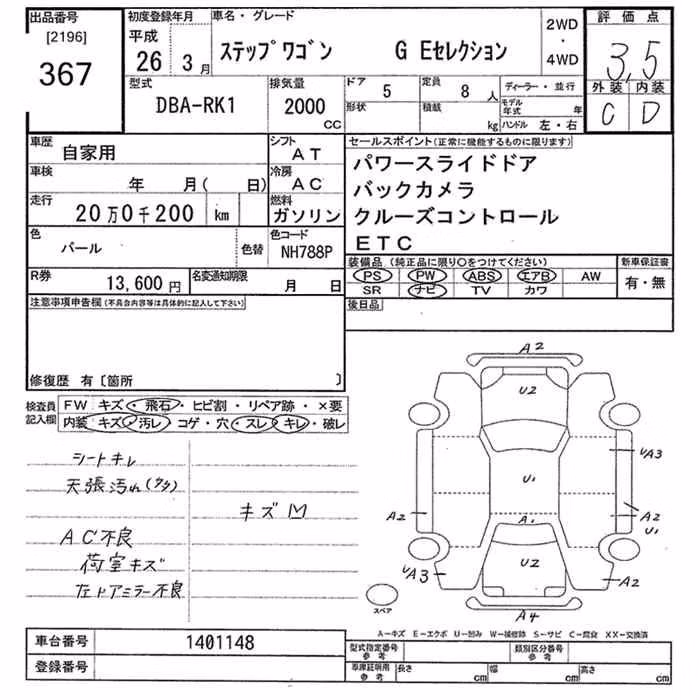 出品番号 初度登録年月 車名・グレード 2WD ・ 4WD 評価点
[2196] 平成
367 26年 3月 ステップワゴン G Eセレクション 3.5
外装 内装
C D
型式 排気量 ドア 定員 ディーラー・並行
DBA-RK1 2000 CC 5 8人 モデル年式 年
形状 積載 kg ハンドル 左・右
車歴 自家用 シフト AT セールスポイント(正常に機能するものに限ります)
車検 年 月( 日) 冷房 AC パワースライドドア
走行 20万0千200 km 燃料 ガソリン バックカメラ
クルーズコントロール
色 パール 色替 色コード NH788P ETC
装備品(純正品に限り〇をつけてください) 新車保証書
PS PW ABS エアB AW 有・無
SR ナビ TV カワ
R券 13,600円 名変通知期限 月 日
後日品
注意事項申告欄(不具合内容等は具体的に記入して下さい)
修復歴 有〔箇所 〕
検査員記入欄 FW キズ・飛石・ヒビ割・リペア跡・×要
内装 キズ・汚レ・コゲ・穴・スレ・キレ・破レ
シートキレ
天張汚れ(タタ)
キズM
AC不良
荷室キズ
左ドアミラー不良
A2
U2
UA3
U1
A2 A1 A2
U1
UA3 U2 A2
スペア
A4
A-キズ E-エクボ U-凹み W-補修跡 S-サビ C-腐食 XX-交換済
車台番号 1401148 型式指定番号 参考 類別区分番号 参考
登録番号 車庫証明用 参考 長さ cm 幅 cm 高さ cm